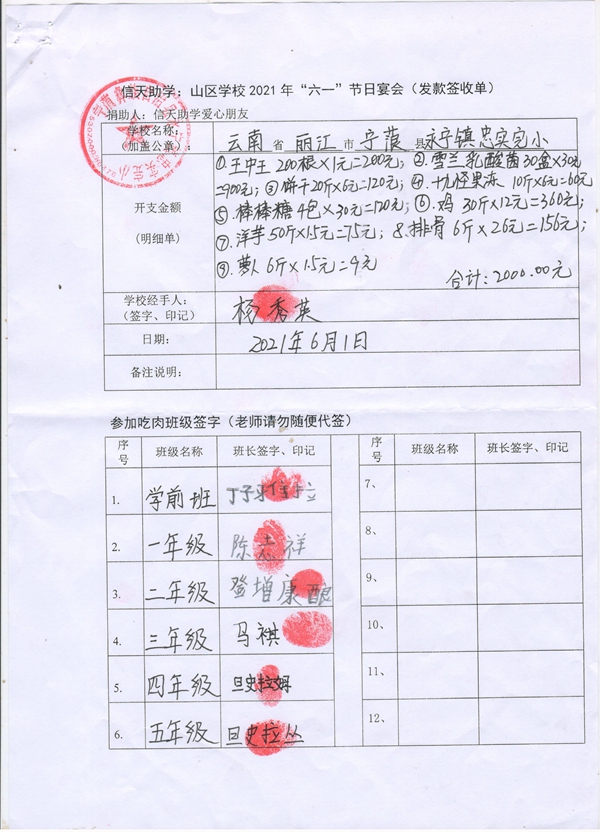 信天助学：山区学校2021年“六一”节日宴会（发款签收单）
捐助人：信天助学爱心朋友
学校名称：
（加盖公章）：
云南省 丽江市 宁蒗县 永宁镇忠实完小
开支金额
（明细单）
①.王中王200根×1元=200元；②.雪兰乳酸菌30盒×30元
=900元；③饼干20斤×6元=120元；④.十九怪果冻 10斤×6元=60元
⑤.棒棒糖4包×30元=120元；⑥.鸡 30斤×12元=360元；
⑦.洋芋50斤×1.5元=75元；8.排骨6斤×26元=156元；
⑨.萝卜6斤×1.5元=9元
合计：2000.00元
学校经手人：
（签字、印记）
杨秀英
日期：
2021年6月1日
备注说明：
参加吃肉班级签字（老师请勿随便代签）
序号 班级名称 班长签字、印记 序号 班级名称 班长签字、印记
1. 学前班 7、
2. 一年级 陈志祥 8、
3. 二年级 登增康 9、
4. 三年级 马祺 10、
5. 四年级 旦史拉姆 11、
6. 五年级 旦史拉丛 12、